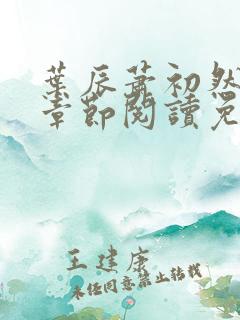 葉辰蕭初然
章節閱讀免
王建康
未经同意禁止转载